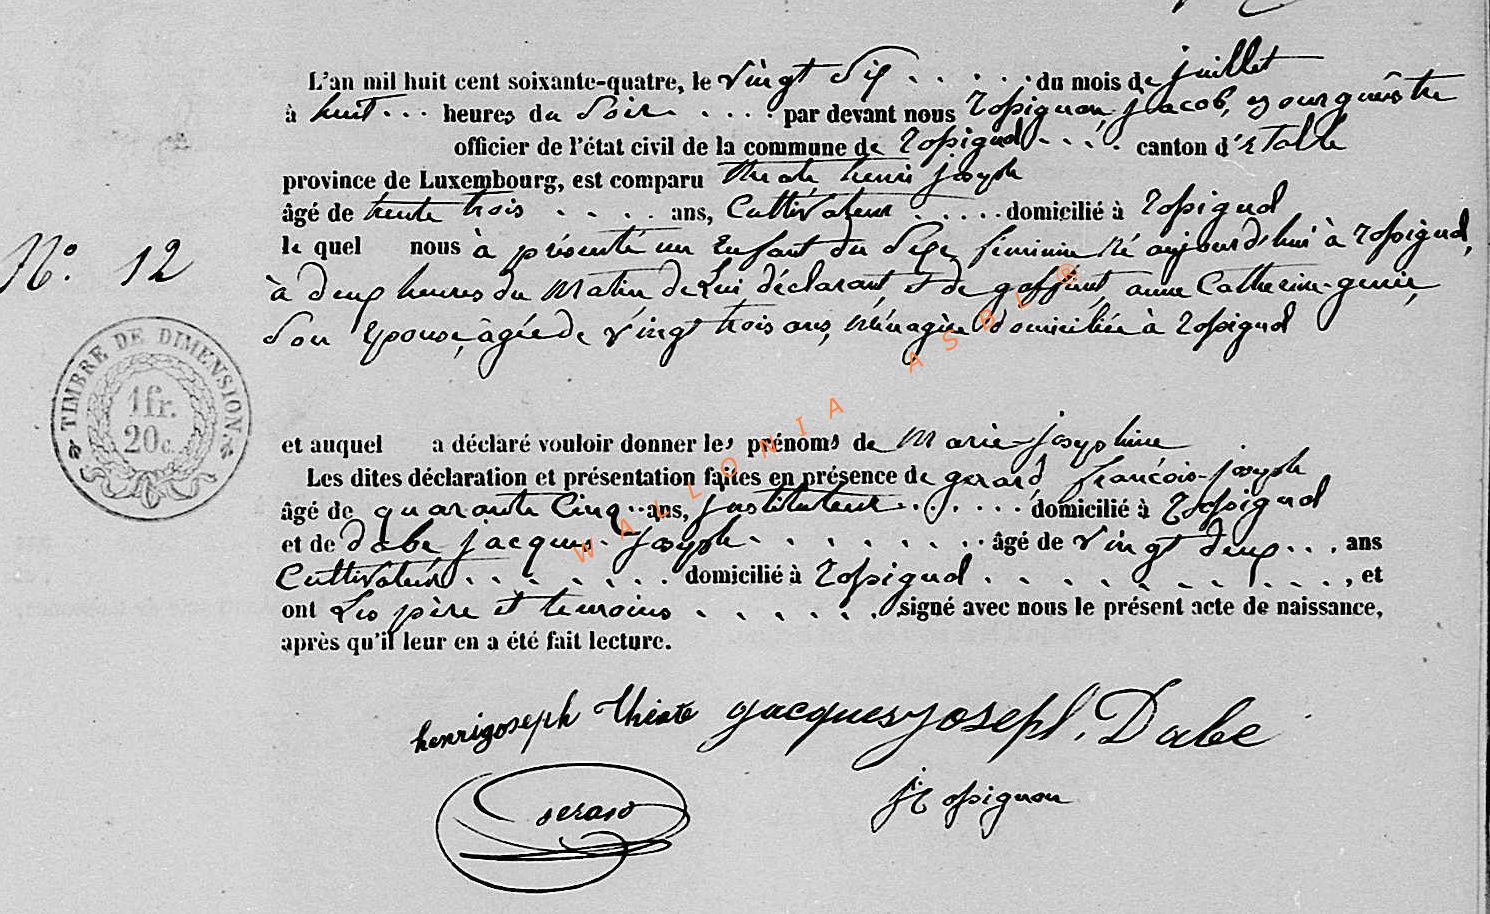 L'an mil huit cent soixante-quatre, le vingt six . . . . . . du mois de juillet
à huit . . . heures du Soir . . . . par devant nous Rossignon, jacob, Bourguêstre
officier de l'état civil de la commune de Rossignol . . . . canton d'Etalle
province de Luxembourg, est comparu thiate henri joseph
âgé de trente trois . . . . ans, Cultivateur . . . . . domicilié à Rossignol
le quel nous à présenté un Enfant du Sexe féminin né aujourd'hui à Rossignol,
N.° 12
à deux heures du Matin de Lui déclarant et de goffinet, anne Catherine-
Son Epouse, âgée de vingt trois ans, Ménagère domiciliée à Rossignol
TIMBRE DE DIMENSION
1 fr.
20 c.
et auquel a déclaré vouloir donner les prénoms de Marie-josephine
Les dites déclaration et présentation faites en présence de gerard, françois-joseph
âgé de quarante Cinq . . ans, jnstituteur . . . . . . domicilié à Rossignol
et de dabe jacques-joseph . . . . . . . . . âgé de vingt deux . . . ans
Cultivateur . . . . . . . domicilié à Rossignol . . . . . . . . . . . , et
ont Les père et temoins . . . . . . signé avec nous le présent acte de naissance,
après qu'il leur en a été fait lecture.
henrijoseph thiate jacquesjoseph Dabe
Gerard
j Rossignon
WALLONIA ASBL ®